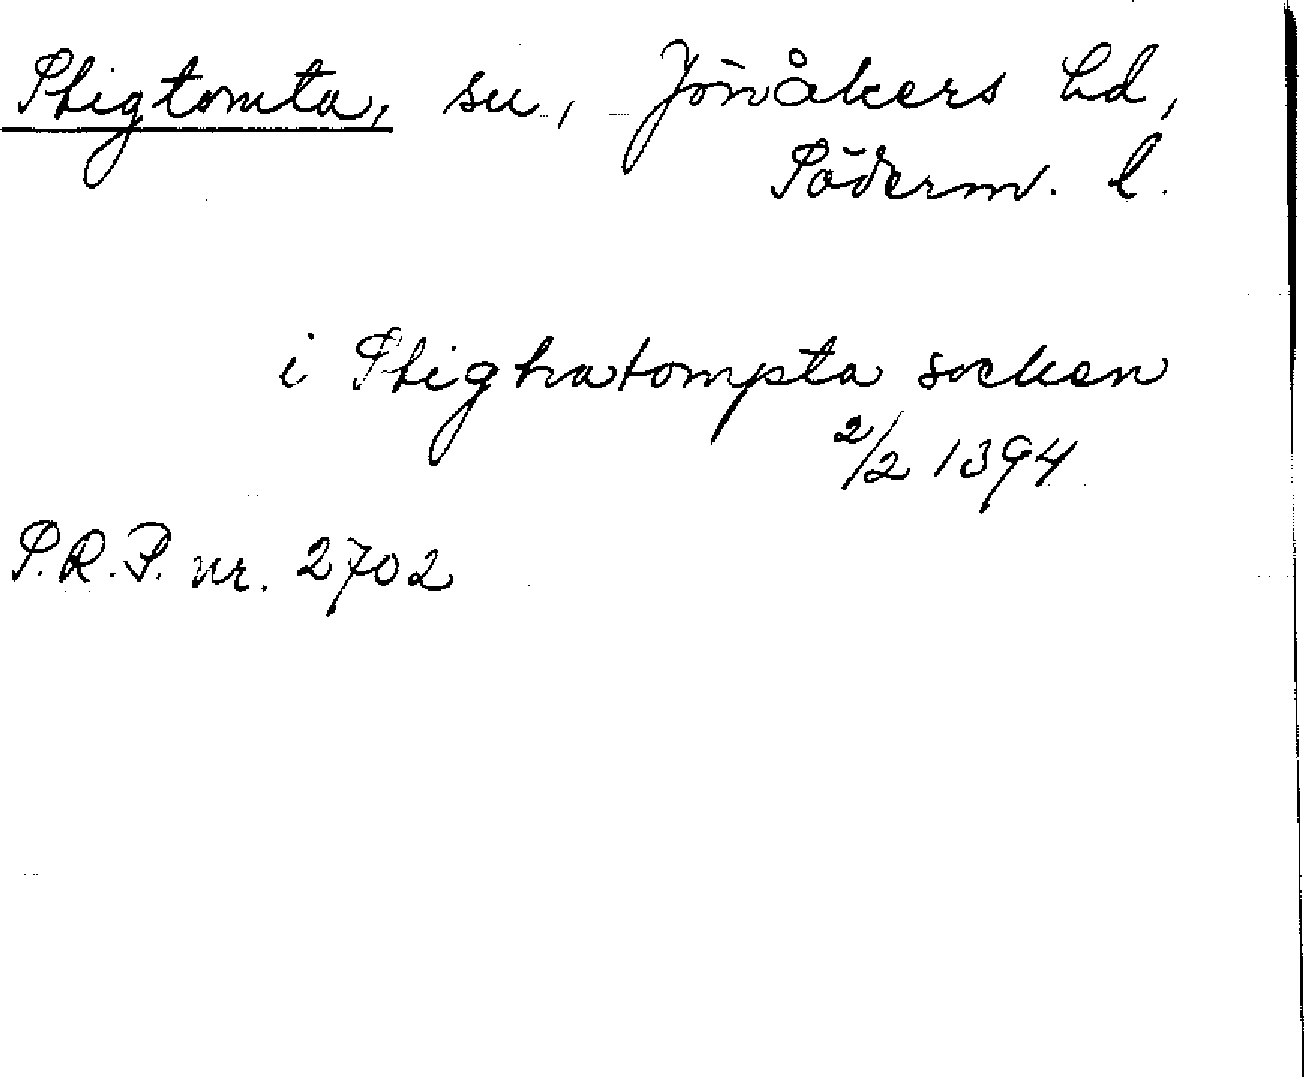 Stigtomta, sn, Jönåkers hd,
Söderm. l.
i Stighatompta socken
2/2 1394
S.R.P. nr. 2702